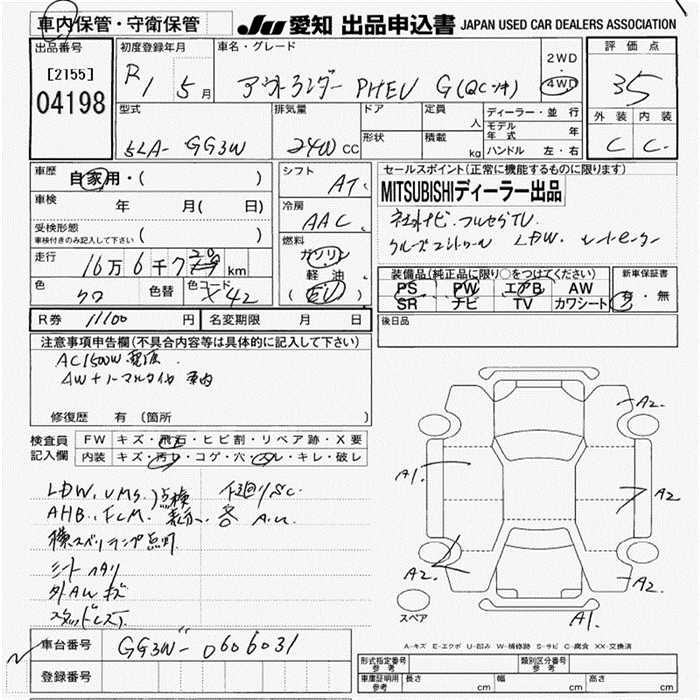 車内保管・守衛保管
JU 愛知 出品申込書 JAPAN USED CAR DEALERS ASSOCIATION
出品番号 初度登録年月 車名・グレード 2WD ・ 4WD 評価点
[2155]
04198
R1 5月 アウトランダー PHEV G(QCツキ) 35
外装 内装
C C
型式 排気量 ドア 定員 人 ディーラー・並行
形状 積載 kg モデル年式 年
5LA- GG3W 2400 CC ハンドル 左・右
車歴 自家用・( )
シフト AT
セールスポイント(正常に機能するものに限ります)
MITSUBISHIディーラー出品
車検 年 月( 日)
冷房 AAC
社外ナビ・フルセグTV
受検形態
車検付きのみ記入して下さい
クルーズコントロール LDW.
走行 16万6千7 km
燃料 ガソリン
軽油
(EV)
装備品(純正品に限り○をつけてください) 新車保証書
PS PW エアB AW 有・無
SR ナビ TV カワシート
色 クロ 色替 色コード X42
後日品
R券 11100 円 名変期限 月 日
注意事項申告欄(不具合内容等は具体的に記入して下さい)
AC1500W電源
AW+ノーマルタイヤ 車内
修復歴 有 (箇所 )
検査員記入欄 FW キズ・飛石・ヒビ割・リペア跡・X要
内装 キズ・汚レ・コゲ・穴・スレ・キレ・破レ
LDW. UMS. 点検 下廻りSC.
AHB. FCM. 表示 各 A.U.
横スベリランプ点灯
シート ヘタリ
外AWキズ
スタッドレス
A2
A1
A2
A2
A2
A1
スペア
A-キズ E-エクボ U-凹み W-補修跡 S-サビ C-腐食 XX-交換済
車台番号 GG3W-0606031
登録番号
形式指定番号 参考 類別区分番号 参考
車庫証明用 参考 長さ cm 幅 cm 高さ cm